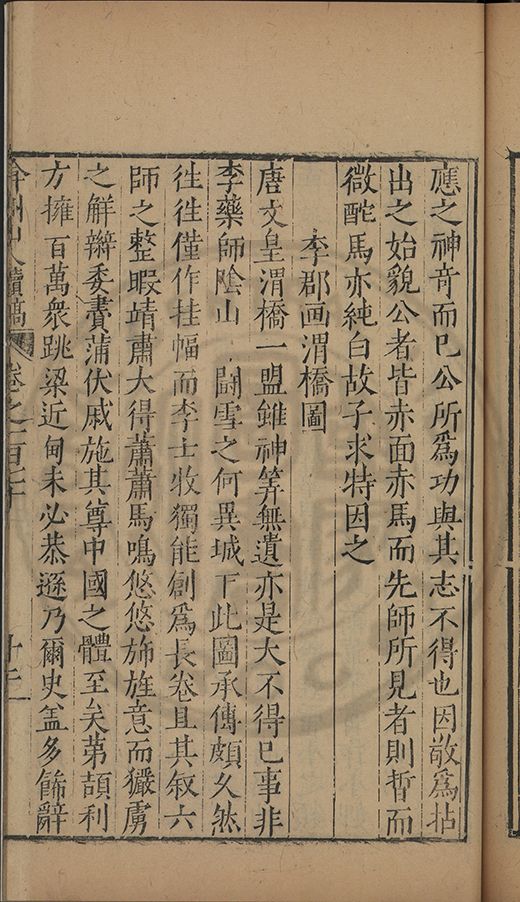 應之神竒而已公所爲功與其志不得也因敬爲拈
出之始貌公者皆赤面赤馬而先師所見者則晳而
微酡馬亦純白故子求特因之
李郡画渭橋圖
唐文皇渭橋一盟雖神筭無遺亦是大不得已事非
李藥師陰山 鬪雪之何異城下此圖承傳頗久然
徃徃僅作挂幅而李士收獨能創爲長卷且其叙六
師之整暇靖肅大得蕭蕭馬鳴悠悠斾旌意而玁虜
之解辮委賮蒲伏戚施其尊中國之體至矣苐頡利
方擁百萬衆跳梁近甸未必恭遜乃爾史盖多餙辭
弇州山人續稿 卷之一百